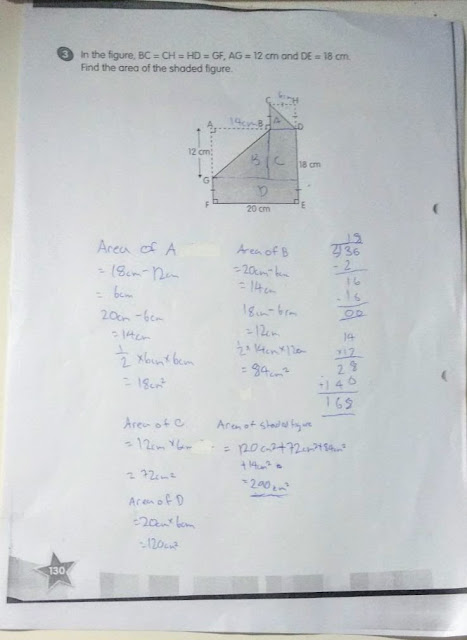 3 In the figure, BC = CH = HD = GF, AG = 12 cm and DE = 18 cm.
Find the area of the shaded figure.
C 6cm H
A 14cm B A D
12 cm
B C 18 cm
G
D
F 20 cm E
Area of A
= 18cm - 12cm
= 6cm
20cm - 6cm
= 14cm
1/2 × 6cm × 6cm
= 18cm²
Area of B
= 20cm - 6cm
= 14cm
18cm - 6cm
= 12cm
1/2 × 14cm × 12cm
= 84cm²
18
2 36
- 2
16
- 16
00
14
×12
28
+ 140
168
Area of C
= 12cm × 6cm
= 72cm²
Area of D
= 20cm × 6cm
= 120cm²
Area of shaded figure
= 120cm² + 72cm² + 84cm²
+ 14cm²
= 290cm²
130